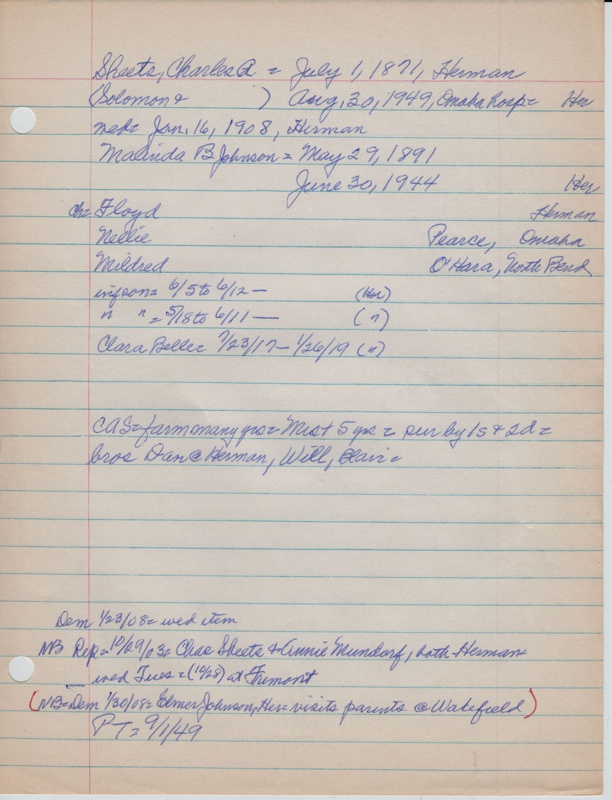 Sheets, Charles A = July 1, 1871, Herman
(Solomon & ) Aug. 30, 1949, Omaha hosp = Her
med = Jan. 16, 1908, Herman
Malinda B Johnson = May 29, 1891
June 30, 1944 Her
ch = Floyd Herman
Nellie Pearce, Omaha
Mildred O'Hara, North Bend
inf son = 6/5 to 6/12 — (Her)
" " = 5/18 to 6/11 — (")
Clara Belle = 7/23/17 – 1/26/19 (")
CAS = farm many yrs = Mist 5 yrs = sur by 1s & 2d =
bros Dan @ Herman, Will, Blair =
Dem 1/23/08 = wed item
NB Rep = 10/29/03 = Chas Sheets & Annie Mundorf, both Herman =
wed Tues = (10/28) at Fremont
(NB = Dem 1/30/08 = Elmer Johnson, Her = visits parents @ Wakefield)
PT = 9/1/49